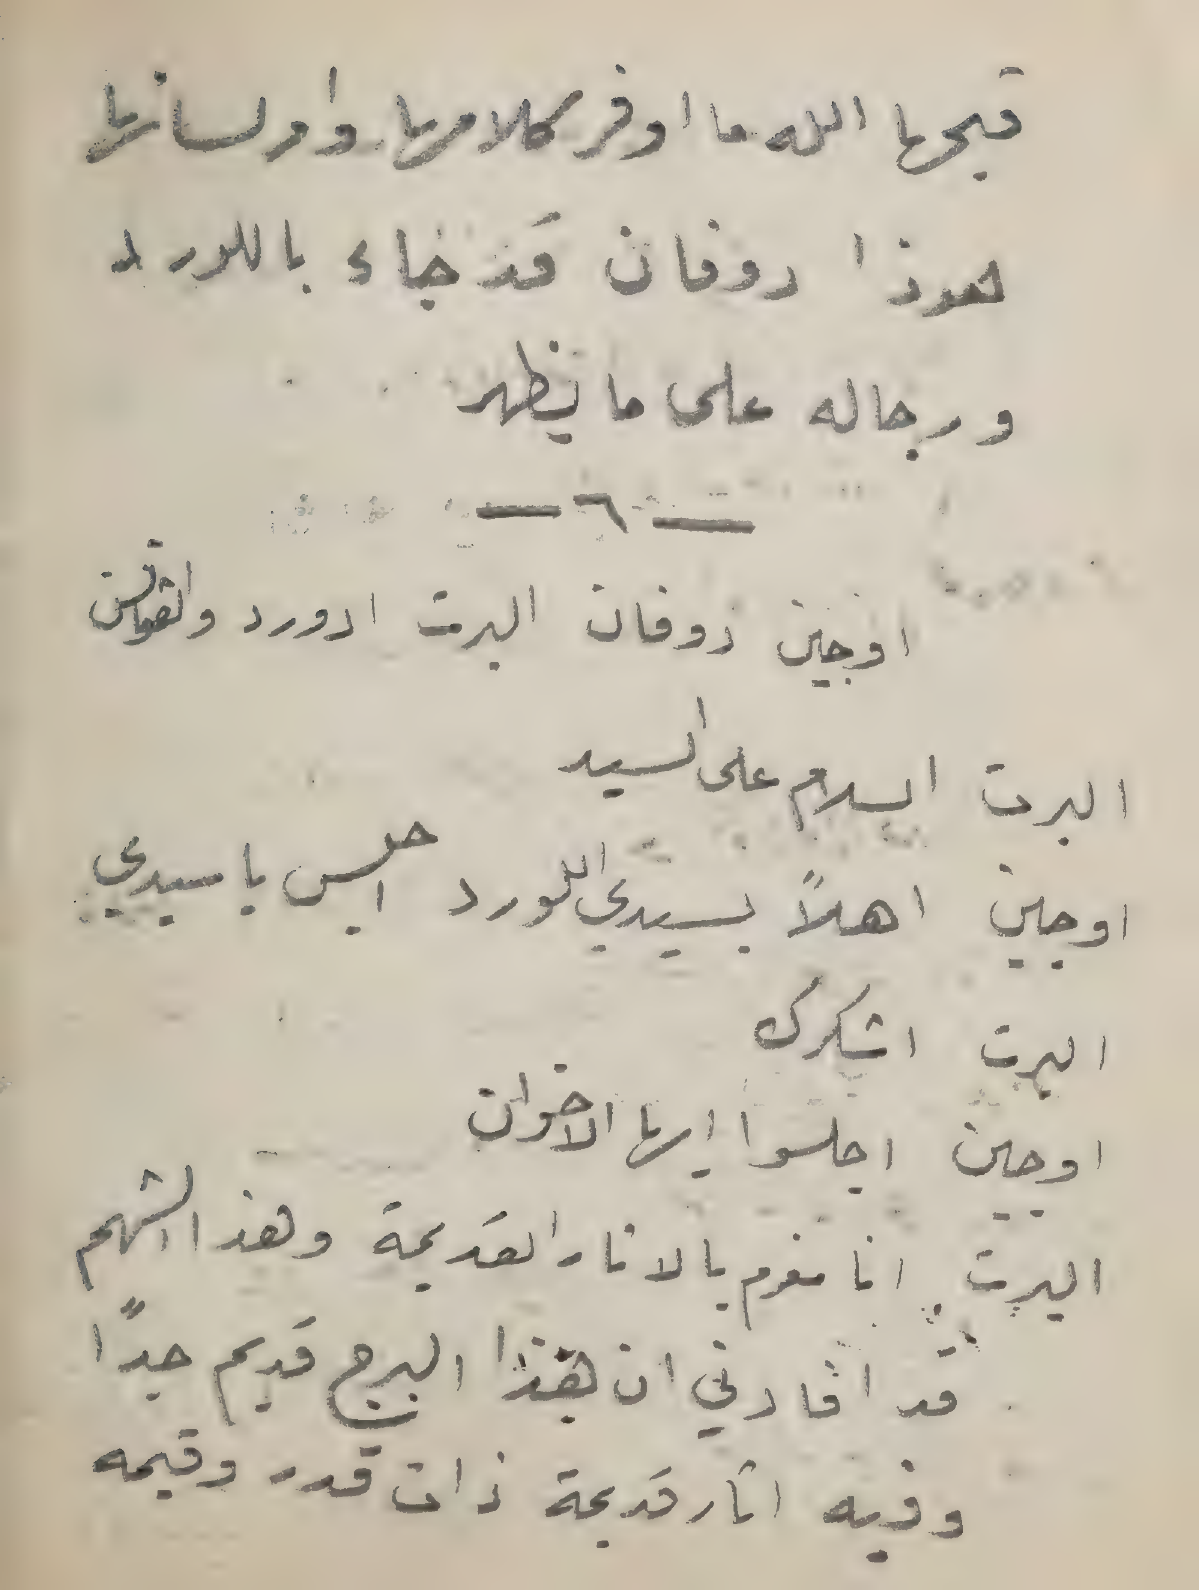 قبحها الله ما اوفر كلامها وامر لسانها
هوذا روفان قد جاء باللورد
ورجاله على ما يظهر
— ٦ —
اوجين روفان البرت ادورد
البرت السلام على السيد
اوجين اهلاً بسيدي اللورد اجلس يا سيدي
البرت اشكرك
اوجين اجلسوا ايها الاخوان
البرت انا مغرم بالاثار القديمة وهذا الشهم
قد افادني ان هذا البرج قديم جداً
وفيه اثار قديمة ذات قدر وقيمه